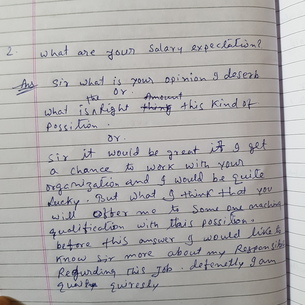 2. What are your Salary expectation?
Ans Sir what is your opinion I deserb
Or.
What is the Right Amount this kind of
Possition.
Or.
Sir it would be great if I get
a chance to work with your
organization and I would be quile
lucky. But what I think that you
will offer me to Some one maching
qualification with this possition.
before this answer I would like to
know sir more about my Responsibi
Regurding this Job. defenetly I am